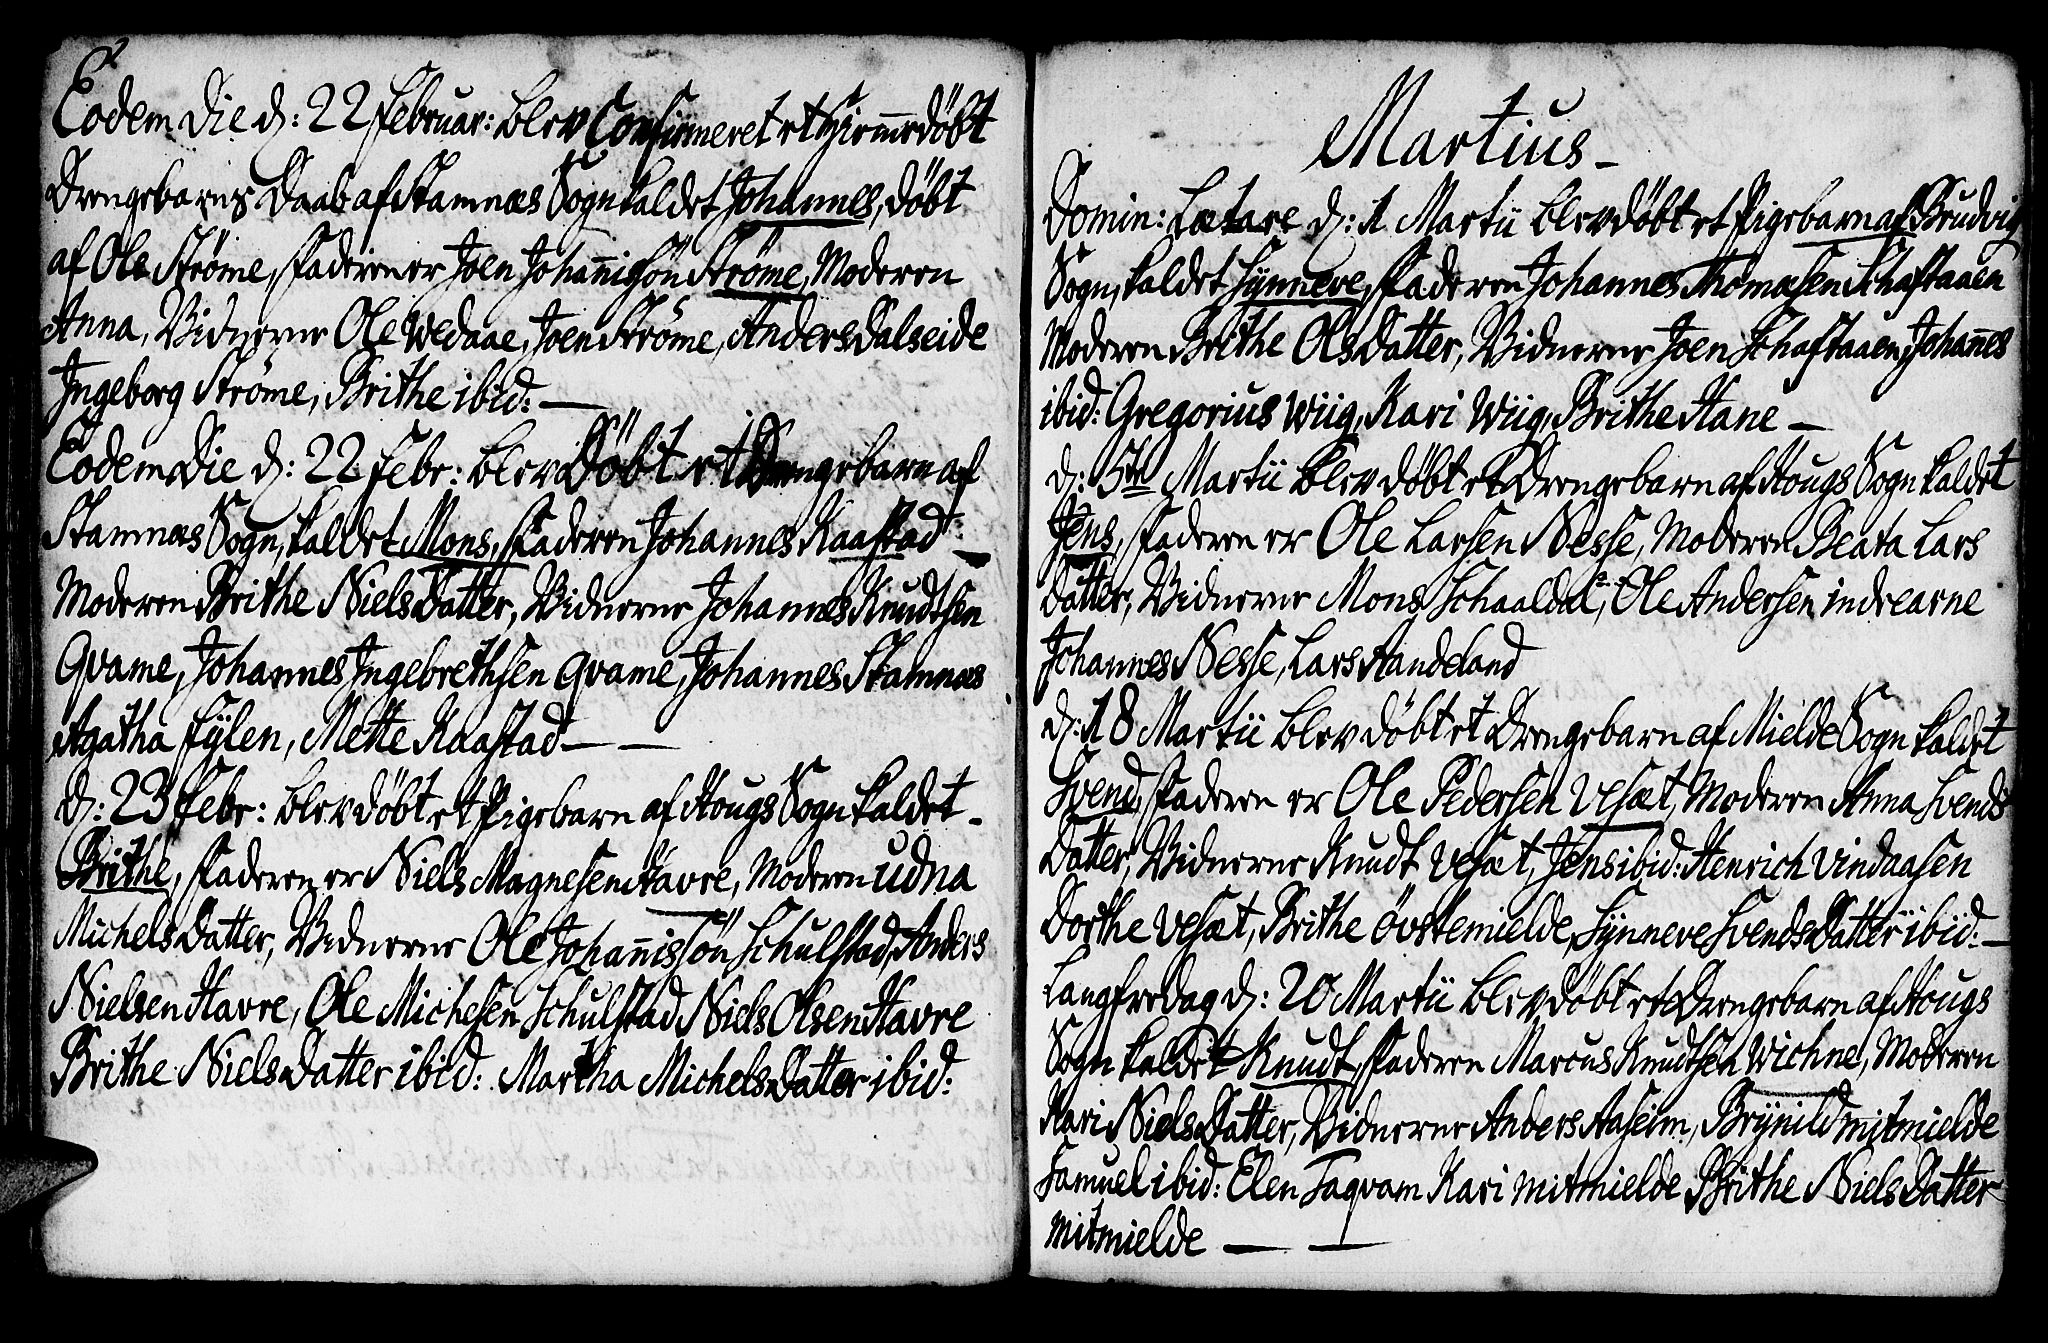 Eodem Die d: 22 Februar: blev Confirmeret et hiemmedøbt
Drengebarns Daab af Stamnæs Sogn kaldet Johannes, døbt
af Ole Strøme, Faderen er Joen Johannissön Strøme, Moderen
Anna, Vidnerne Ole Wedaae, Joen Strøme, Anders Dalseide
Ingeborg Strøme, Brithe ibid: —
Eodem Die d: 22 Febr: blev Døbt et Drengebarn af
Stamnæs Sogn, kaldet Mons, Faderen Johannes Kaastad
Moderen Brithe Niels Datter, Vidnerne Johannes Knudtsen
Qvame, Johannes Ingebrethsen Qvame, Johannes Stamnæs
Agatha Fylen, Mette Kaastad — —
d: 23 Febr: blev døbt et Pigebarn af Hougs Sogn kaldet
Brithe, Faderen er Niels Magnesen Havre, Moderen Udna
Michels Datter, Vidnerne Ole Johannissön Schulstad, Anders
Nielsen Havre, Ole Michelsen Schulstad Niels Olsen Havre
Brithe Niels Datter ibid: Martha Michels Datter ibid:
Martius
Domin: Lætare d: 1 Martii blev døbt et Pigebarn af Brudvig
Sogn, kaldet Synneve, Faderen Johannes Thomæsen Schaftaaen
Moderen Brithe Ols Datter, Vidnerne Joen Schaftaaen, Johannes
ibid: Gregorius Wiig, Kari Wiig, Brithe Hane —
d: 5te Martii blev døbt et Drengebarn af Hougs Sogn kaldet
Jens, Faderen er Ole Larsen Nesse, Moderen Beata Lars
Datter, Vidnerne Mons Schaaldal, Ole Andersen indrearne
Johannes Nesse, Lars Aandeland
d: 18 Martii blev døbt et Drengebarn af Mielde Sogn kaldet
Svend, Faderen er Ole Pedersen Vesæt, Moderen Anna Svends
Datter, Vidnerne Knudt Vesæt, Jens ibid: Henrich Vindaasen
Dorthe Vesæt, Brithe Övstemielde, Synneve Svends Datter ibid: —
Langfredag d: 20 Martii blev døbt et Drengebarn af Hougs
Sogn kaldet Knudt, Faderen Marcus Knudtsen Wichne, Moderen
Kari Niels Datter, Vidnerne Anders Aaseim, Brynild mitmielde
Samuel ibid: Elen Taqvam Kari mitmielde Brithe Niels Datter
mitmielde — —